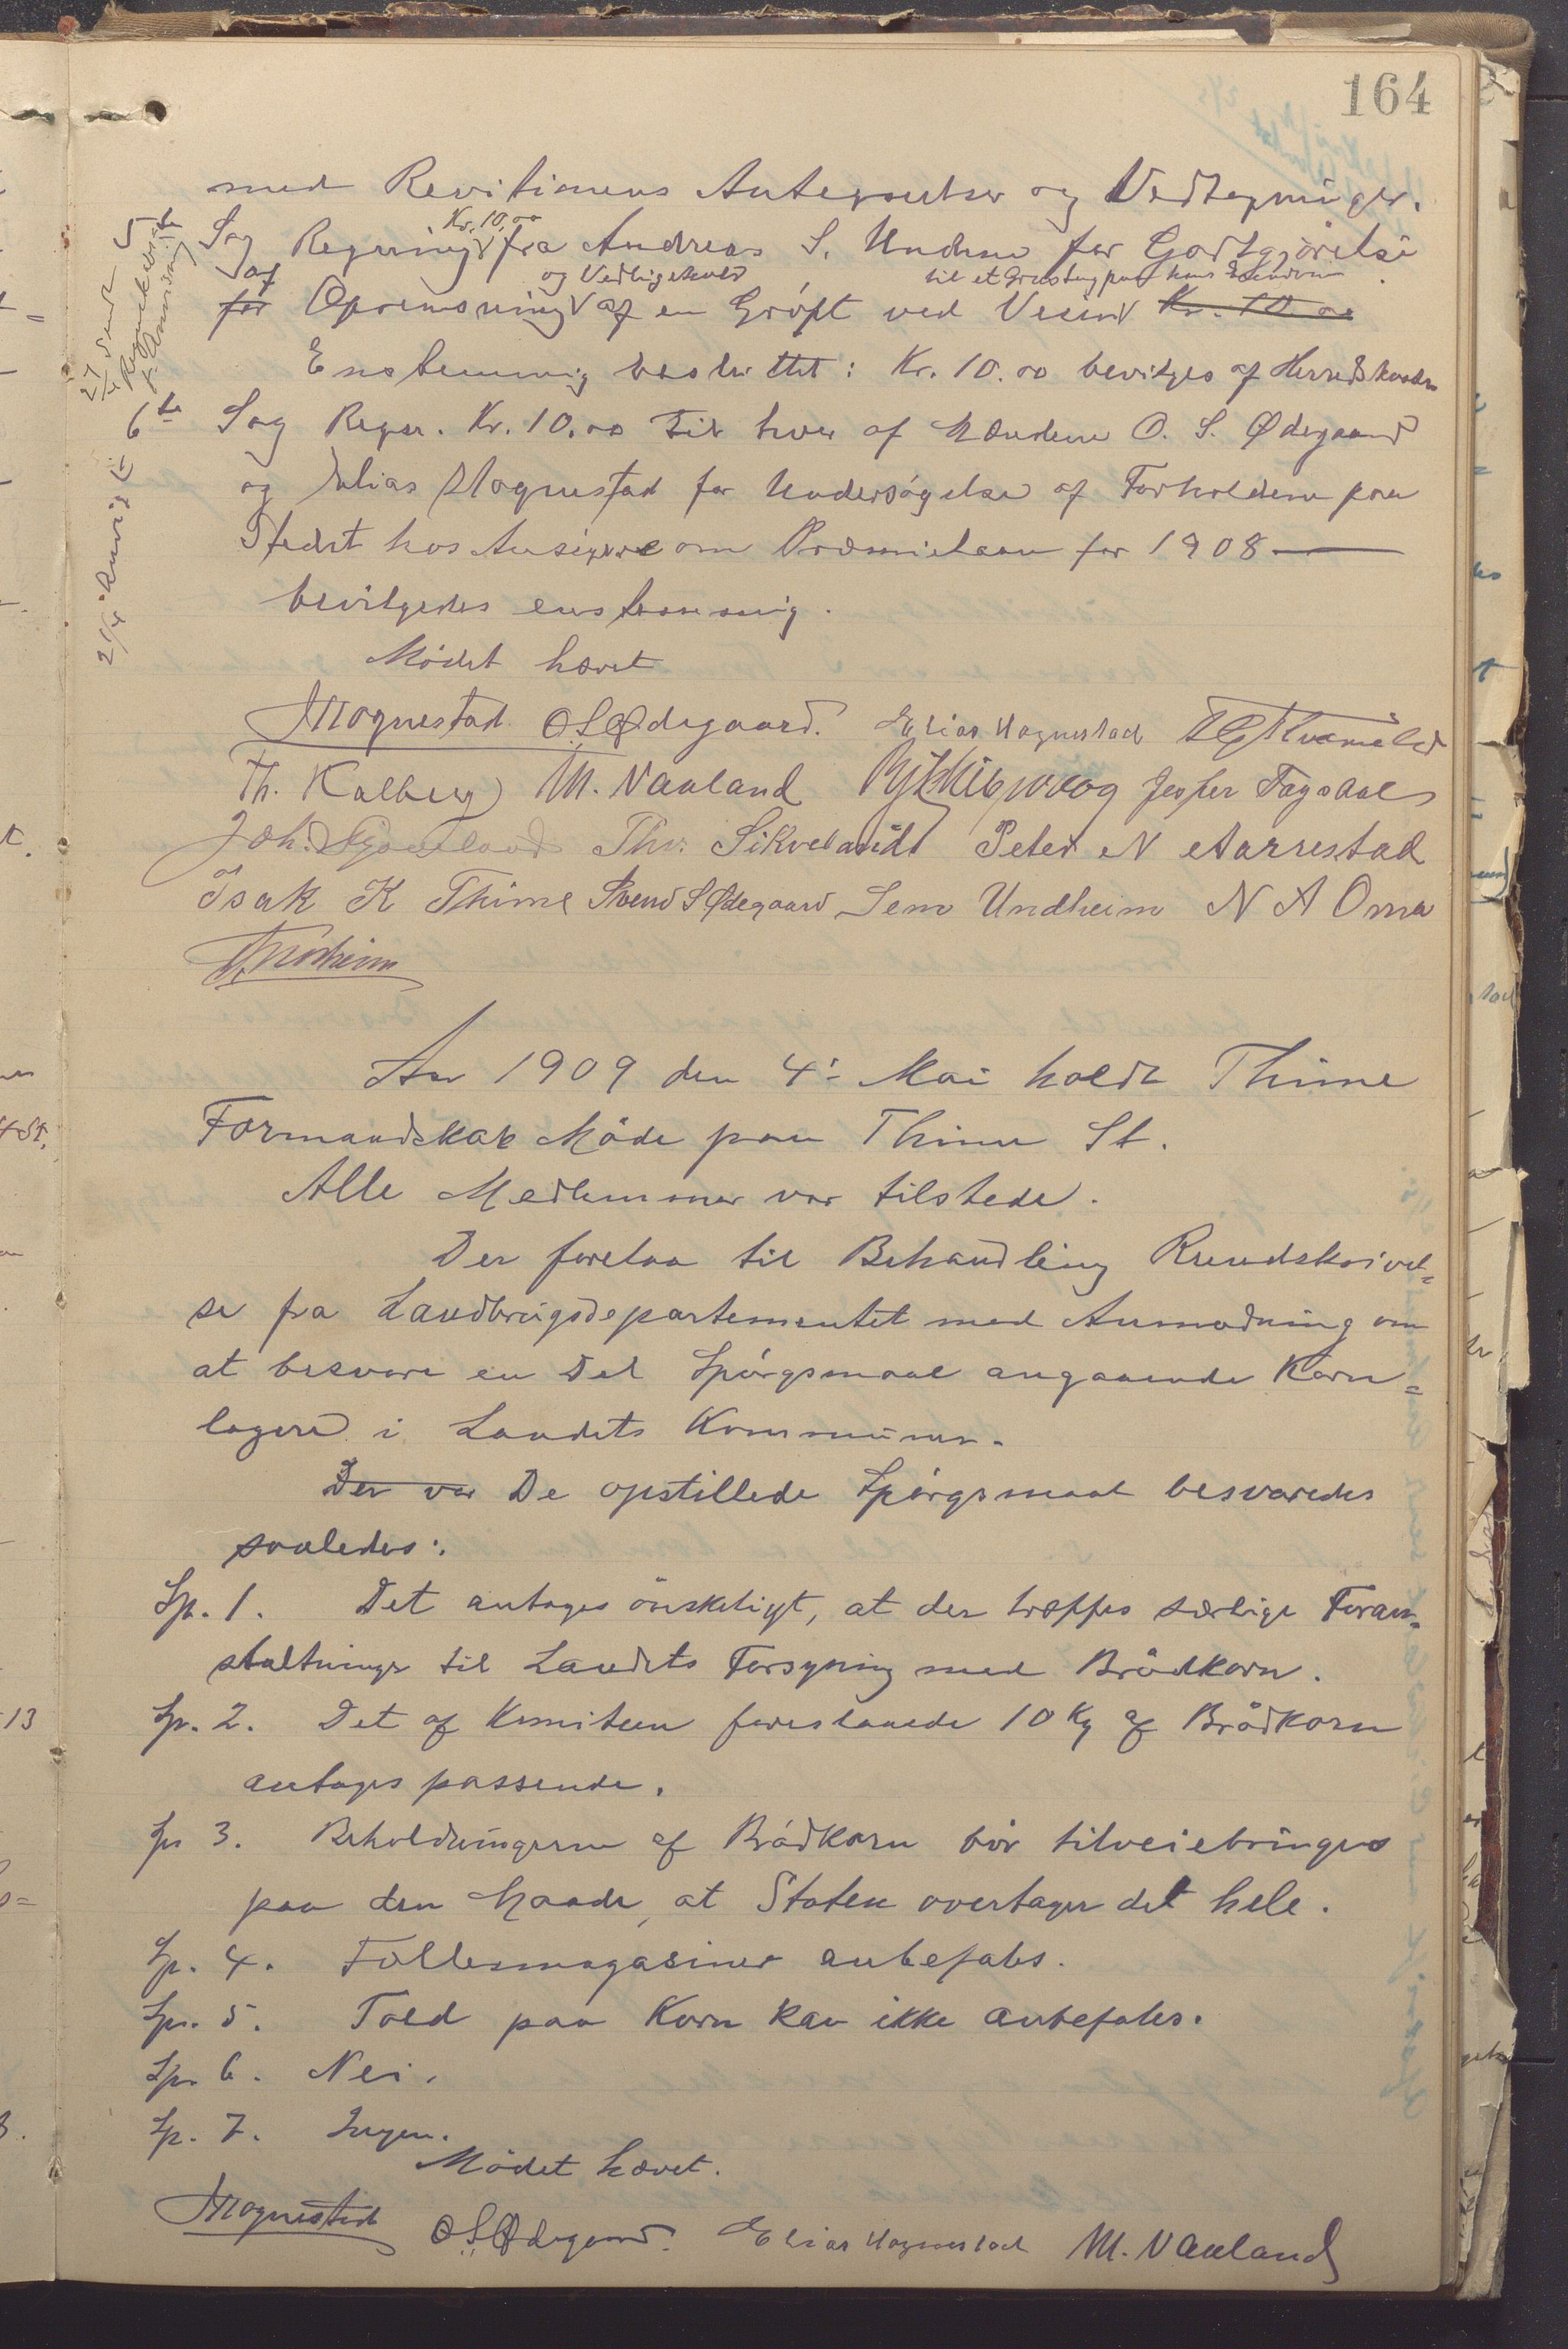 164
med Revisionens Antegnelser og Vedtegninger.
5te Sag Regning Kr. 10.00 fra Andreas S. Undem for Godtgjörelse
af for Oprensning og Vedligehold af en Gröft ved Veien til et Grustag paa hans Eiendom Kr. 10.00
Enstemmig besluttet: Kr. 10.00 bevilges af Herredskassen
6te Sag Regn. Kr. 10.00 til hver af Mændene O. S. Ødegaard
og Elias Hognestad for Undersögelse af Forholdene paa
Stedet hos Ansögere om Præmielaan for 1908
bevilgedes enstemmig.
Mödet hævet
27/4 sendt
21/4 Anvist
Hognestad O S Ødegaard. Elias Hognestad
Th. Kalberg M. Vaaland Jesper Fagdal
Joh. Thv. Sikvelandt Peter N Aarrestad
Isak K Thime Svend S Ødegaard Sem Undheim N A Oma
Aar 1909 den 4de Mai holdt Thime
Formandskab Möde paa Thime St.
Alle Medlemmer var tilstede.
Der forelaa til Behandling Rundskrivel=
se fra Landbrugsdepartementet med Anmodning om
at besvare en Del Spörgsmaal angaaende Korn=
lagere i Landets Kommuner.
Der var De opstillede Spörgsmaal besvaredes
saaledes:
Sp. 1. Det antages önskeligt, at der træffes særlige Foran-
staltninger til Landets Forsyning med Brödkorn.
Sp. 2. Det af Komiteen foreslaaede 10 Kg af Brödkorn
antages passende.
Sp 3. Beholdningerne af Brödkorn bör tilveiebringes
paa den Maade, at Staten overtager det hele.
Sp. 4. Fællesmagasiner anbefales.
Sp. 5. Told paa Korn kan ikke anbefales.
Sp. 6. Nei.
Sp. 7. Ingen.
Mödet hævet.
Hognestad O S Ødegaard. Elias Hognestad M. Vaaland